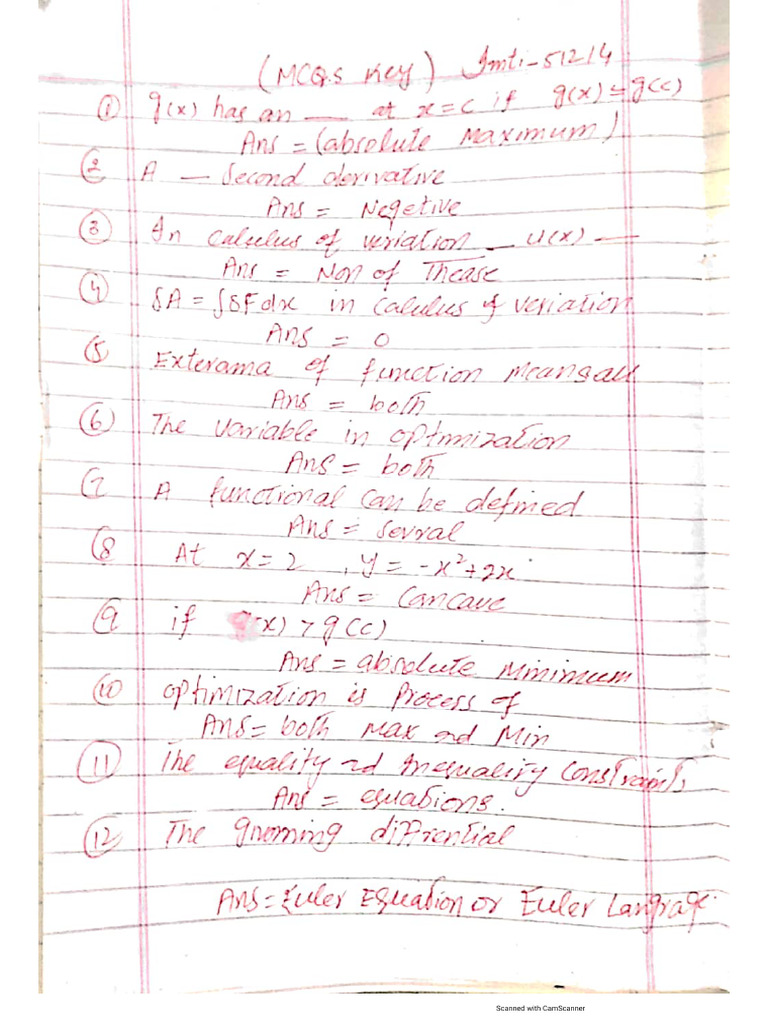 (MCQS Key) Imti-51214
① g(x) has an — at x=c if g(x)≤g(c)
Ans = (absolute Maximum)
② A — Second derivative
Ans = Negetive
③ In Calculus of veriation — u(x) —
Ans = Non of Thease
④ δA = ∫δFdx in Calculus of veriation
Ans = 0
⑤ Exterama of function means all
Ans = both
⑥ The variable in optimization
Ans = both
⑦ A functional can be defined
Ans = Sevral
⑧ At x=2 , y= -x²+2x
Ans = Concave
⑨ if g(x) > g(c)
Ans = absolute Minimum
⑩ optimization is Process of
Ans = both Max and Min
⑪ The equality and Inequality Constraints
Ans = equations.
⑫ The diffrential
Ans = Euler Equation or Euler Langrage
Scanned with CamScanner